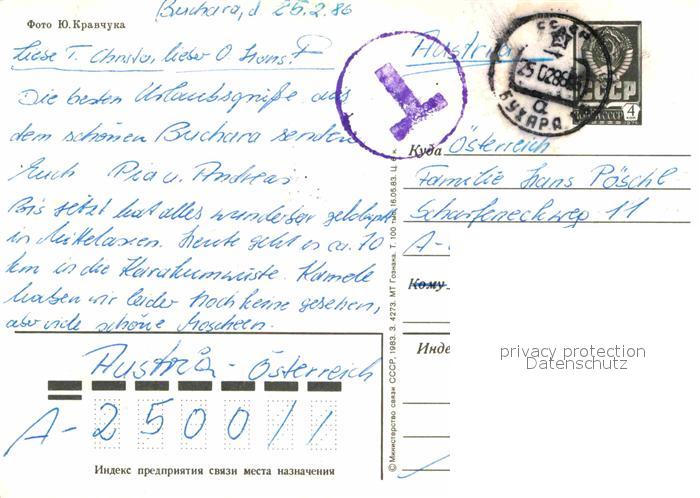 Buchara, d. 25.2.86
Фото Ю. Кравчука
Liebe T. Christa, lieber O. Hans!
Die besten Urlaubsgrüße aus
dem schönen Buchara senden
Euch Pia u. Andreas
Bis jetzt hat alles wunderbar geklappt
in Mittelasien. Heute geht es ca. 70
km in die Karakumwüste. Kamele
haben wir leider noch keine gesehen,
aber viele schöne Moscheen.
Austria - Österreich
A-2500
Индекс предприятия связи места назначения
© Министерство связи СССР, 1983. З. 4273. МТ Гознака. Т. 100 тыс. 16.05.83. Ц. к.
T
Austria
СССР
БУХАРА
СССР
ПОЧТА СССР
4
Куда Österreich
Familie Hans Pöschl
Scharfeneckweg 11
A-
Кому
Инде
privacy protection
Datenschutz